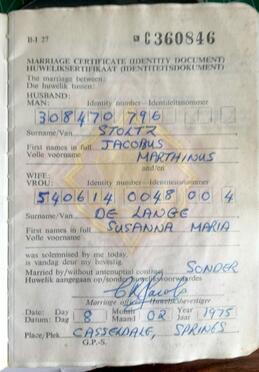 B-I 27 C360846
MARRIAGE CERTIFICATE (IDENTITY DOCUMENT)
HUWELIKSERTIFIKAAT (IDENTITEITSDOKUMENT)
The marriage between:
Die huwelik tussen:
HUSBAND:
MAN: Identity number—Identiteitsnommer
308470 796
Surname/Van STOLTZ
First names in full JACOBUS
Volle voorname MARTHINUS
and/en
WIFE:
VROU: Identity number—Identiteitsnommer
540614 0048 00 4
Surname/Van DE LANGE
First names in full SUSANNA MARIA
Volle voorname
was solemnised by me today.
is vandag deur my bevestig.
Married by/without antenuptial contract SONDER
Huwelik aangegaan op/sonder huweliksvoorwaardes
Marriage officer Huweliksbevestiger
Date: Day 8 Month 02 Year 1975
Datum: Dag Maand Jaar
Place/Plek CASSELDALE, SPRINGS
G.P.-S.